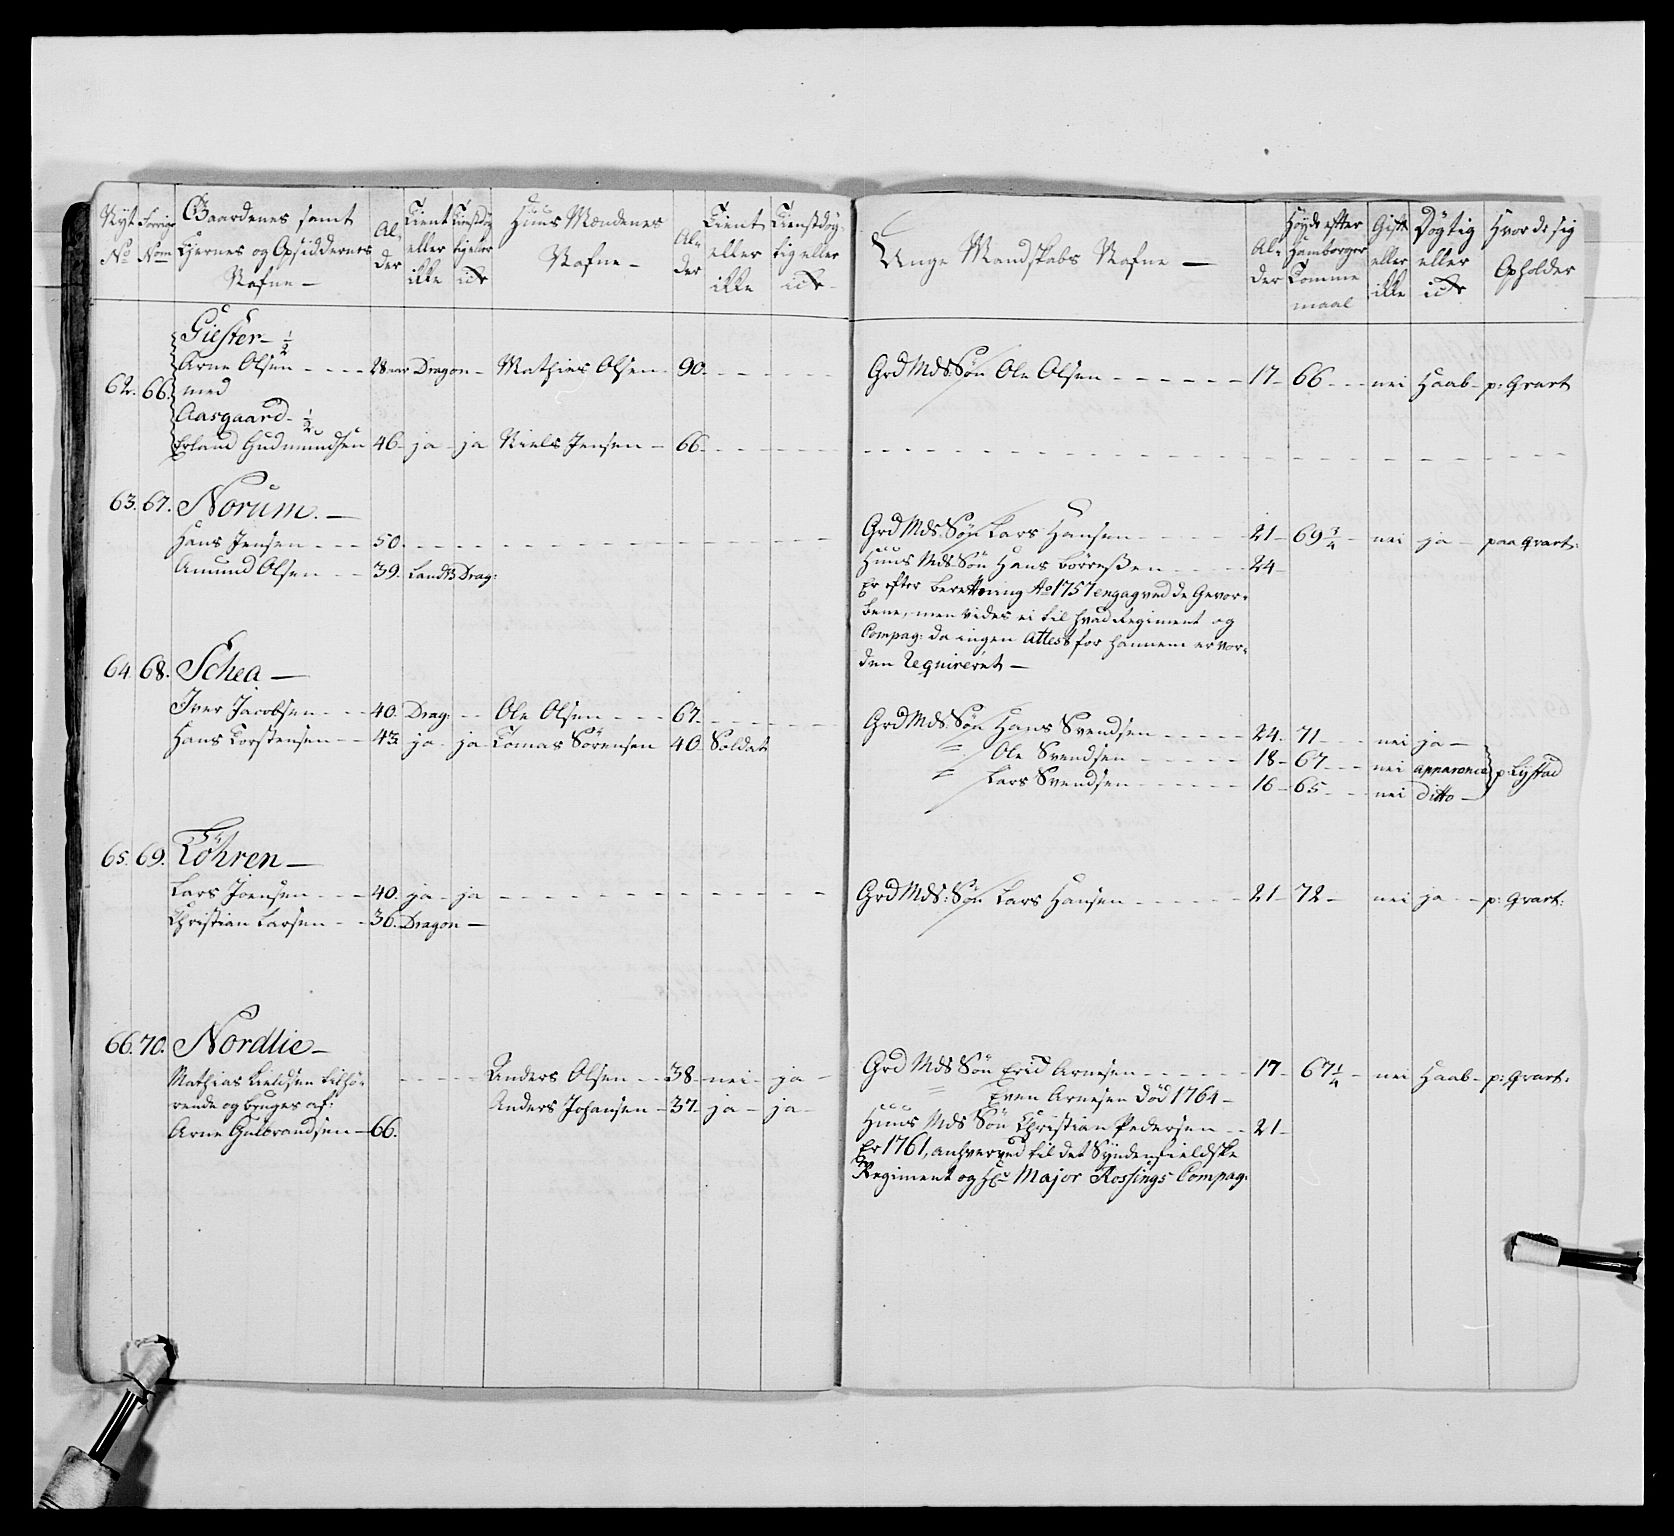 Nyt No
Forrige Nom
Gaardenes samt Ejernes og Opsiddernes Nafne —
Alder
Tient eller ikke
Tienstdygtig eller icke
Huus Mændenes Nafne —
Alder
Tient eller ikke
Tienstdygtig eller icke
Unge Mandskabs Nafne —
Alder
Høyde efter Hamborger Tomme maal
Gift eller ikke
Dygtig eller icke
Hvor de sig Opholder
62. 66.
Giester — 1/2
Arne Olsen - - - - 28 aar Dragon — Mathies Olsen 90. - - - -
med
Aasgaard — 1/2
Erland Gudmundsen 46 — ja — ja Niels Jensen — 66. - - - -
Grd Mds Søn Ole Olsen - - - - - - 17 — 66 - - - nei Haab — p: Qvart
63. 67. Norum. —
Hans Jensen - - - 50. - - - -
Amund Olsen - - 39. Landts Drag:
Grd Mds. Søn Lars Hansen - - - - - 21 — 69 3/4 — nei — ja — paa Qvart:
Huus Mds Søn Hans Børreßen - - - - 24 —
Er efter Berettning Ao 1757 engag ved de Gevor-
bene, men vides ei til hvad Regiment og
Compag: da ingen Attest for hannem er vor-
den requireret —
64. 68. Schea —
Iver Jacobsen - - - 40. Drag: - - Ole Olsen - - - 67. - - - -
Hans Torstensen - - 43. ja — ja Tomas Sørensen 40 — Soldat
Grd Mds. Søn Hans Svendsen - - - - - 24. 71 - - - nei ja —
" Ole Svendsen - - - - - 18 — 67 - - - nei apparence
" Lars Svendsen - - - - - - 16 — 65 - - - nei ditto —
p: Lystad
65. 69. Töhren —
Lars Joensen - - - 40. ja — ja - - - -
Christian Larsen - - 36. Dragon —
Grd Mds: Søn Lars Hansen - - - - - 21 — 72 — nei ja - - p: Qvart:
66. 70. Nordlie —
Mathias Kieldsen tilhø-
rende og bruges af:
Arne Gulbrandsen — 66.
- - - - Anders Olsen - - 38 — nei — ja —
Anders Johansen — 37 — ja — ja —
Grd Mds Søn Erid Arnesen - - - - - 17 — 67 1/4 — nei Haab — p: Qvart:
" Even Arnesen død 1764 —
Huus Mds Søn Christian Pedersen - - 21 —
Er 1761, anhverved til det Syndenfieldske
Regiment og Hr. Major Rossings Compag: